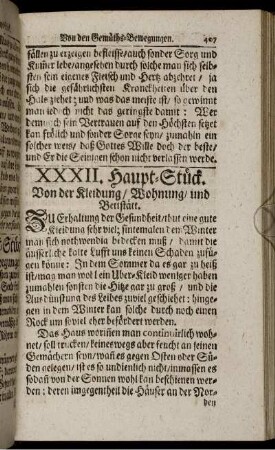 Von den Gemüths-Bewegungen. 407
fällen zu erzeigen befleisse/auch sonder Sorg und
Kum̃er lebe/angesehen durch solche man sich selb-
sten sein eigenes Fleisch und Hertz abzehret / ja
sich die gefährlichsten Kranckheiten über den
Hals ziehet; und was das meiste ist/ so gewinnt
man jedoch nicht das geringste damit: Wer
demnach sein Vertrauen auf den Höchsten setzet
kan frölich und sonder Sorge seyn/ zumahln ein
solcher weis/ daß Gottes Wille doch der beste/
und Er die Seinigen schon nicht verlassen werde.
XXXII. Haupt-Stück.
Von der Kleidung/ Wohnung/ und
Bettstätt.
ZU Erhaltung der Gesundheit/thut eine gute
Kleidung sehr viel; sintemalen den Winter
man sich nothwendig bedecken muß / damit die
äusserliche kalte Lufft uns keinen Schaden zufü-
gen könne: In dem Sommer da es gar zu heiß
ist/mag man wol lein Uber-Kleid weniger haben
zumahlen sonsten die Hitze gar zu groß / und die
Ausdünstung des Leibes zuviel geschiehet: hinge-
gen in dem Winter kan solche durch noch einen
Rock um soviel eher befördert werden.
Das Haus worinnen man continuirlich woh-
net/ soll trucken/ keineswegs aber feucht an seinen
Gemächern seyn/wañ es gegen Osten oder Sü-
den gelegen/ ist es so undienlich nicht/inmassen es
sodañ von der Sonnen wohl kan beschienen wer-
den: deren imgegentheil die Häuser an der Nor-
den